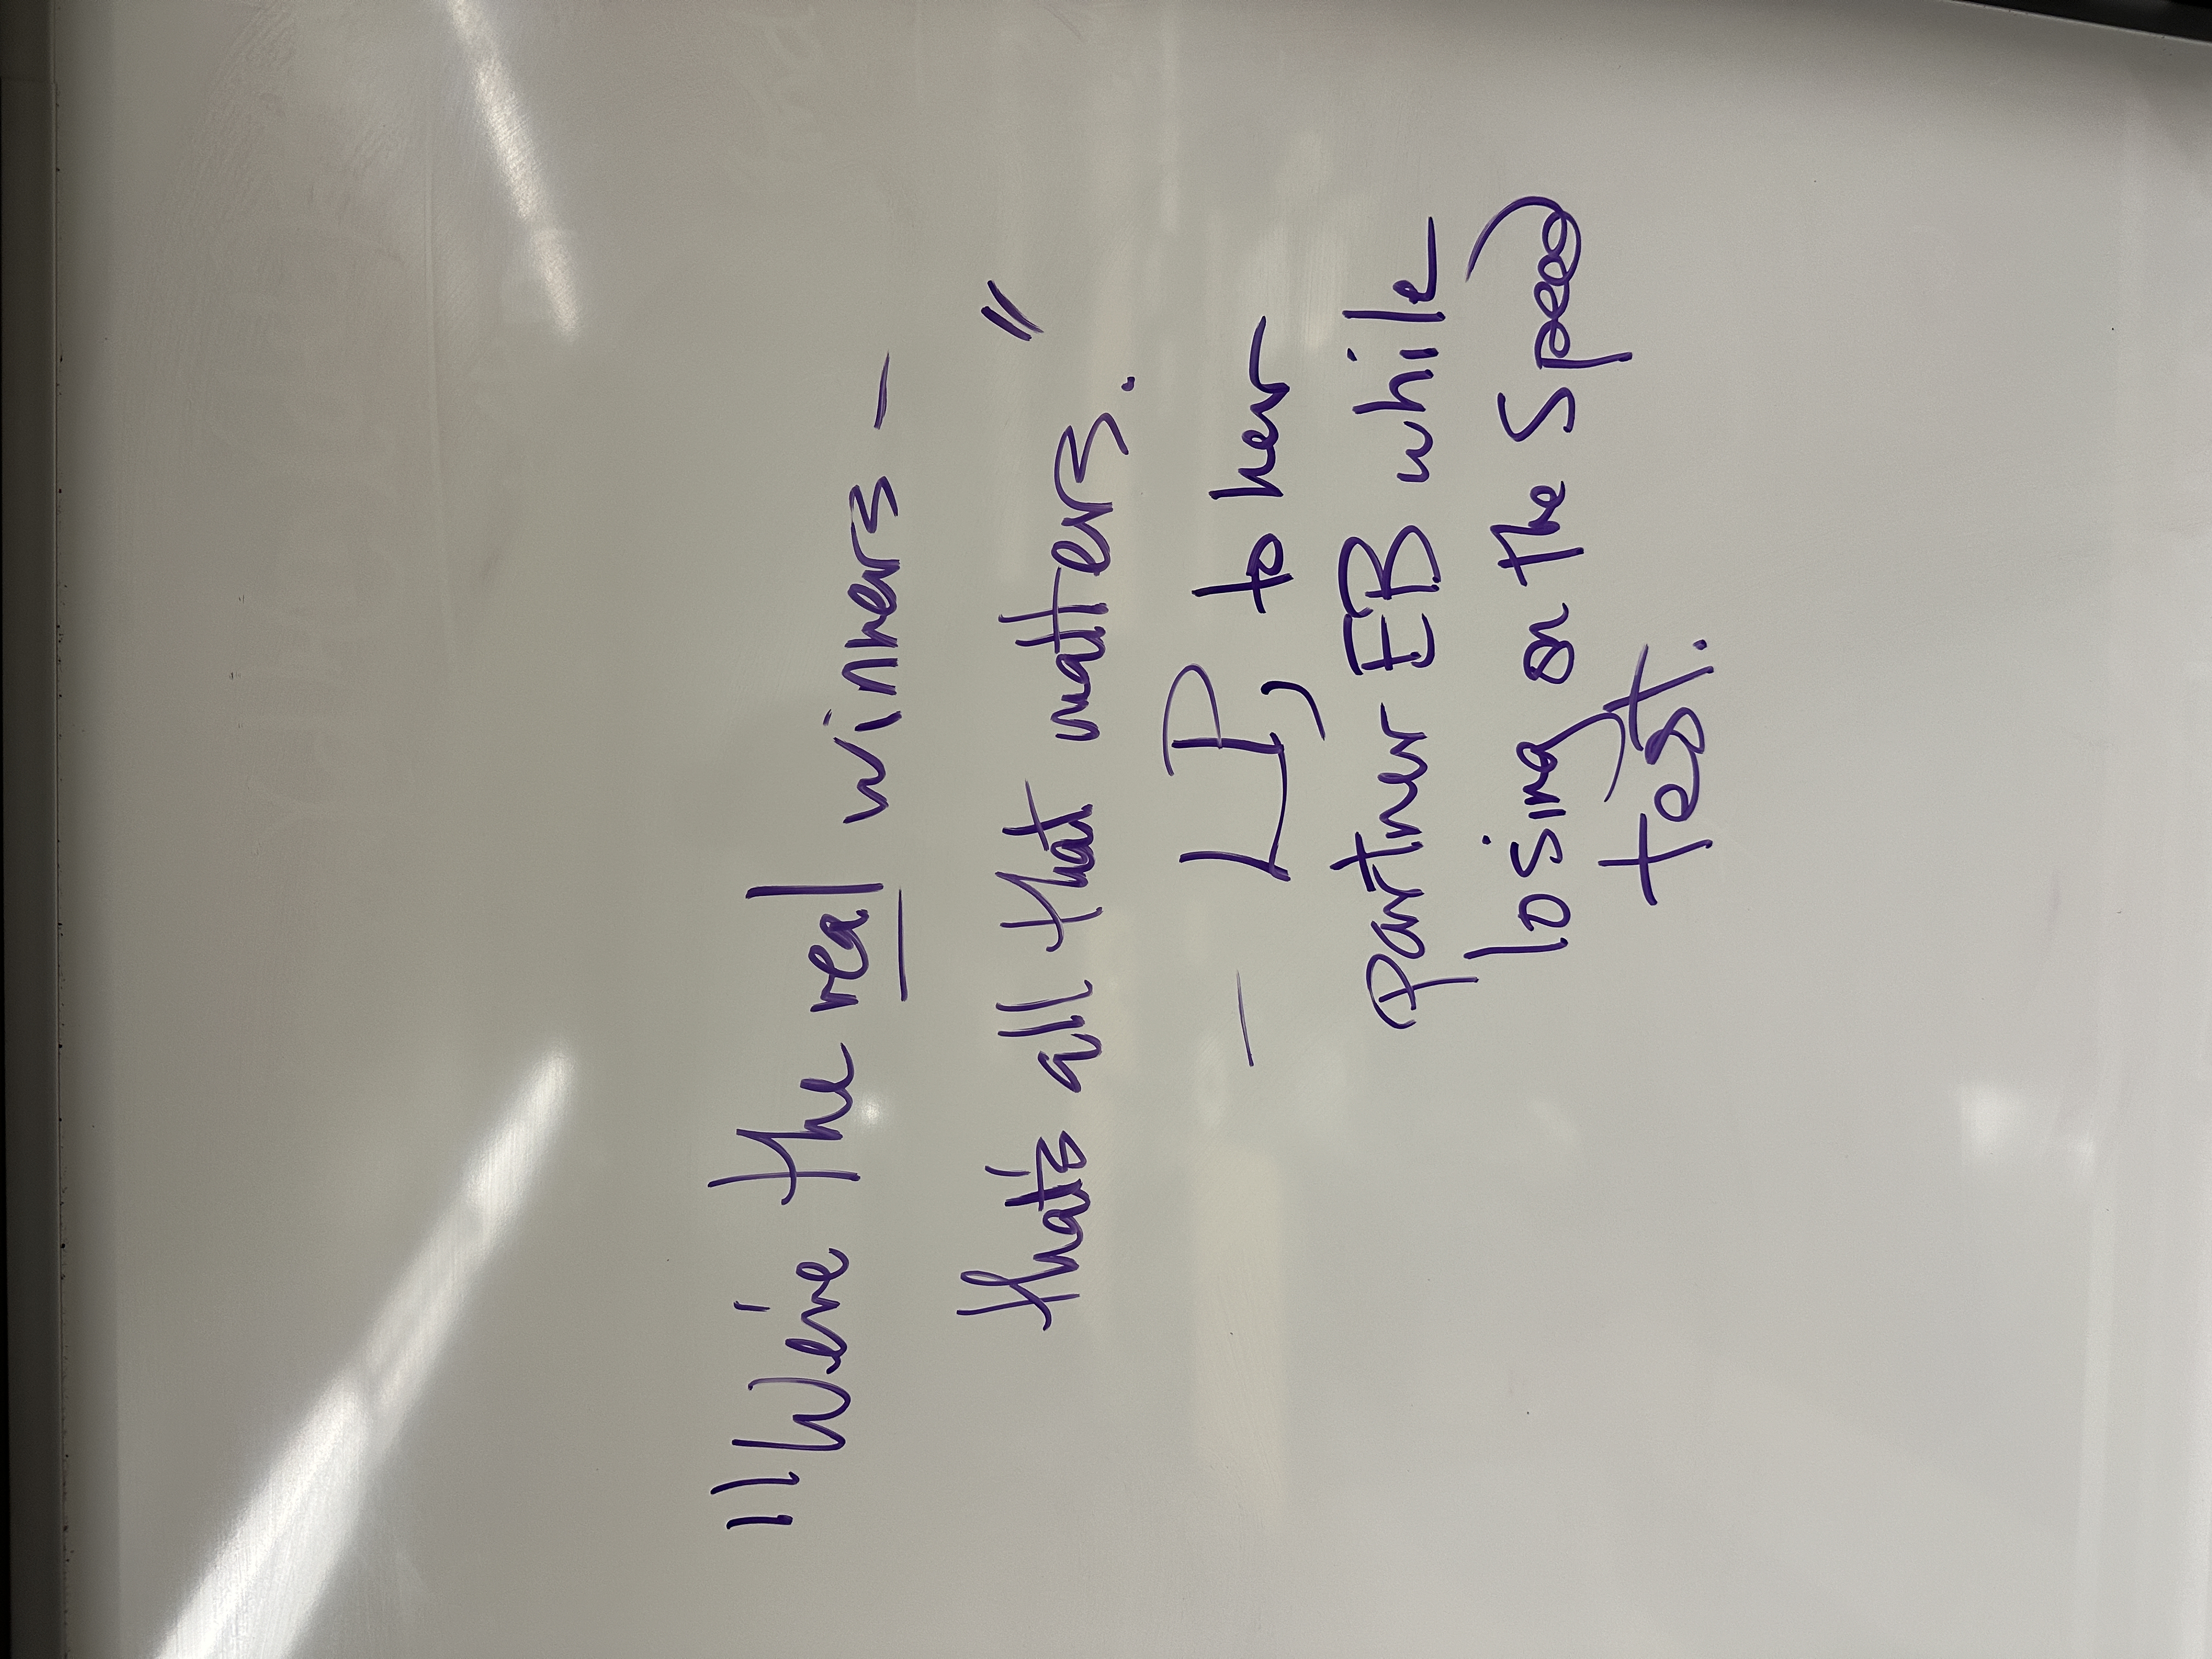 "We're the real winners -
that's all that matters."
- LP, to her
partner EB while
losing on the Speed
test.